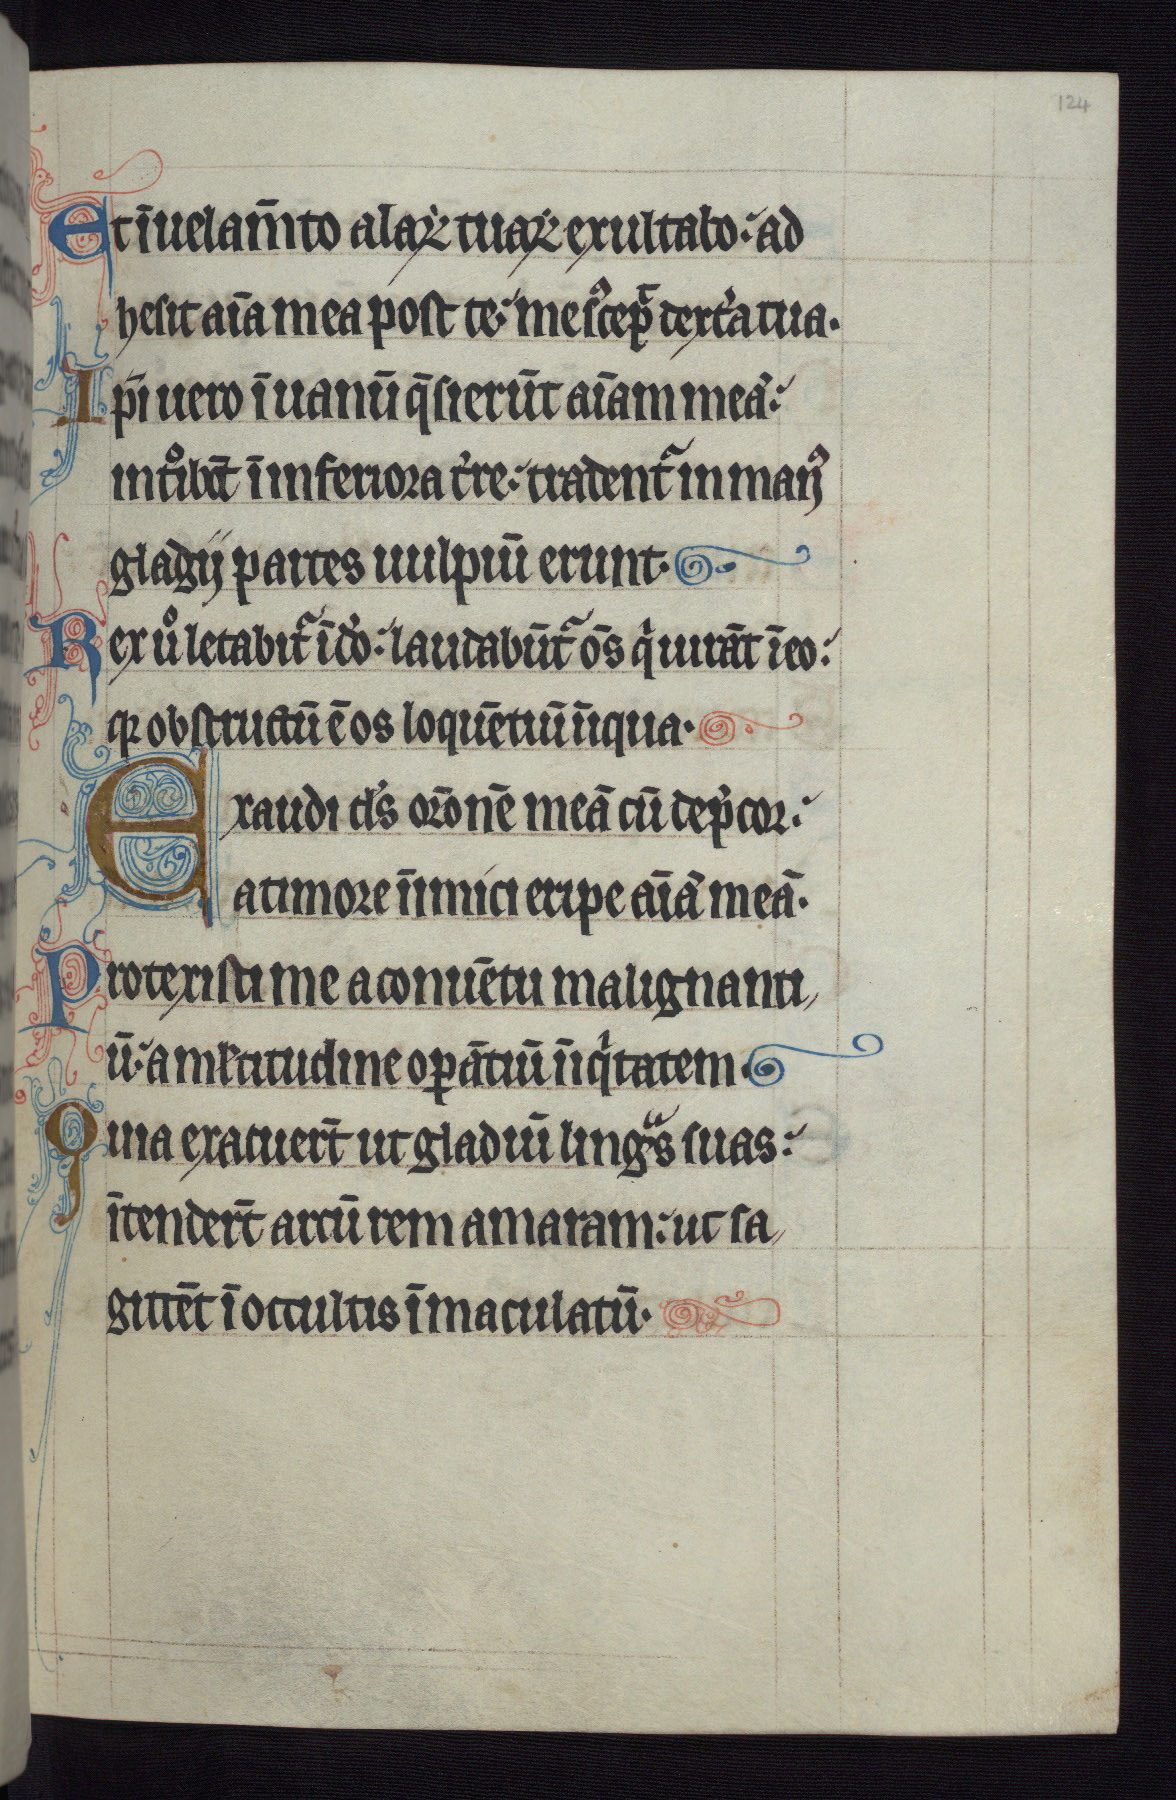 124
Et ī uelam̄to alaꝝ tuaꝝ exultabo: ad
hesit aīa mea post te: me sꝰcepͭ dextᷓa tua.
Ip̄i uero ī uanū q̄sierūt aīam meā:
intͦibūt ī inferiora tᷓre: tradentᷓ in manꝰ
gladij partes uulpiū erunt.
Rex uͦ letabitᷓ ī dō: laudabūtᷓ om̄s qͥ iurāt ī eo:
qꝛ obstructū ē os loquētiū īiqua.
Exaudi dn̄s or̄onē meā cū dep̄cor:
a timore īimici eripe aīā meā.
Protexisti me a conuētu malignanti
ū: a mltitudine oꝑātiū īiqͥtatem.
Quia exacuerūt ut gladiū linguᷓs suas:
ītenderūt arcū rem amaram: ut sa
gittēt ī occultis īmaculatū.